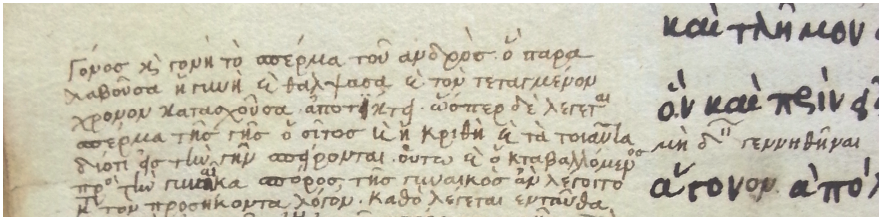 Γόνος κὶ γονὴ τὸ σπέρμα τοῦ ἀνδρὸς. ὃ παρα
λαβοῦσα ἡ γυνὴ κὶ θάλψασα κὶ τὸν τεταγμένον
χρόνον κατασχοῦσα. ἀποτίκτει. ὥσπερ δὲ λέγεται
σπέρμα τῆς γῆς ὁ σῖτος κὶ ἡ κριθὴ κὶ τὰ τοιαῦτα
διότι εἰς τὴν γῆν σπείρονται. οὕτω κὶ ὁ καταβαλλόμενος
πρὸς τὴν γυναῖκα σπόρος τῆς γυναικὸς ἂν λέγοιτο
κατὰ τὸν προσήκοντα λόγον. καθὸ λέγεται ἐνταῦθα
καὶ τλῆμον
ὃν καὶ πρὶν
μὴ γεννηθῆναι
ἄγονον ἀπό